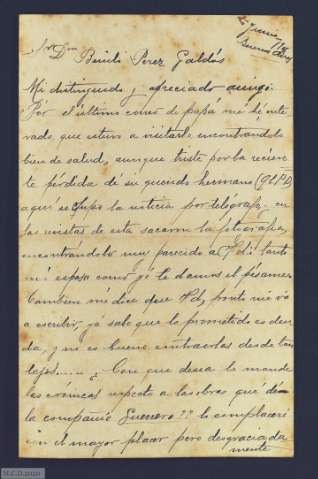 Sr Dn
Benito Perez Galdós
Mi distinguido y apreciado amigo:
Por el ultimo correo de papá me he ente
rado, que estuvo a visitarle encontrandole
bien de salud, aunque triste por la recien
te pérdida de su querido hermano (Q.E.P.D)
aqui se supo la noticia por telégrafo, en
las revistas de esta sacaron la fotografia,
encontrándolo muy parecido a Vd. tanto
mi esposo como yó le damos el pesame.
Tambien me dice que Vd, pronto me vá
a escribir, ya sabe que lo prometido es deu
da, y no es bueno contraerlas desde tan
lejos..... ¿ Con que desea le mande
las crónicas respecto a las obras que dé
la compañia Guerrero?? le complaceré
con el mayor placer pero desgraciada
mente
M.C.D.2020